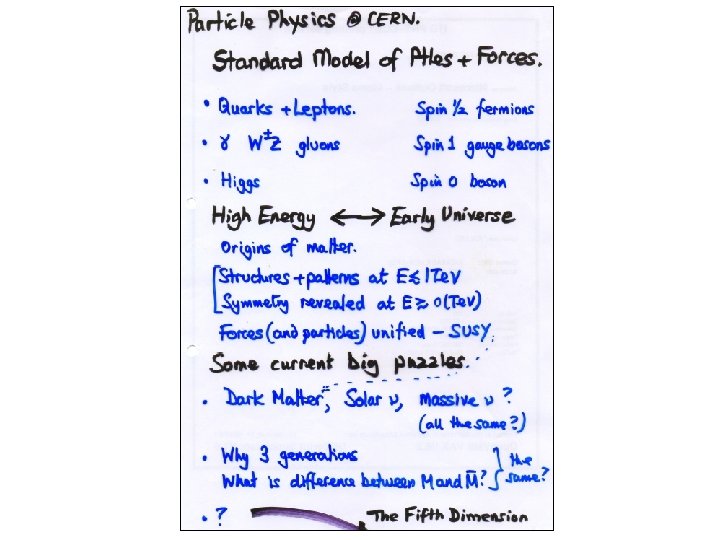 Particle Physics @ CERN.
Standard Model of Ptles + Forces.
• Quarks + Leptons. Spin ½ fermions
• γ W± Z gluons Spin 1 gauge bosons
• Higgs Spin 0 boson
High Energy ⟷ Early Universe
Origins of matter.
Structures + patterns at E ≲ 1TeV
Symmetry revealed at E ≳ O(TeV)
Forces (and particles) unified – SUSY.
Some current big puzzles.
• Dark Matter, Solar ν, Massive ν ?
(all the same?)
• Why 3 generations
What is difference between M and M̄? } the same?
• ? The Fifth Dimension